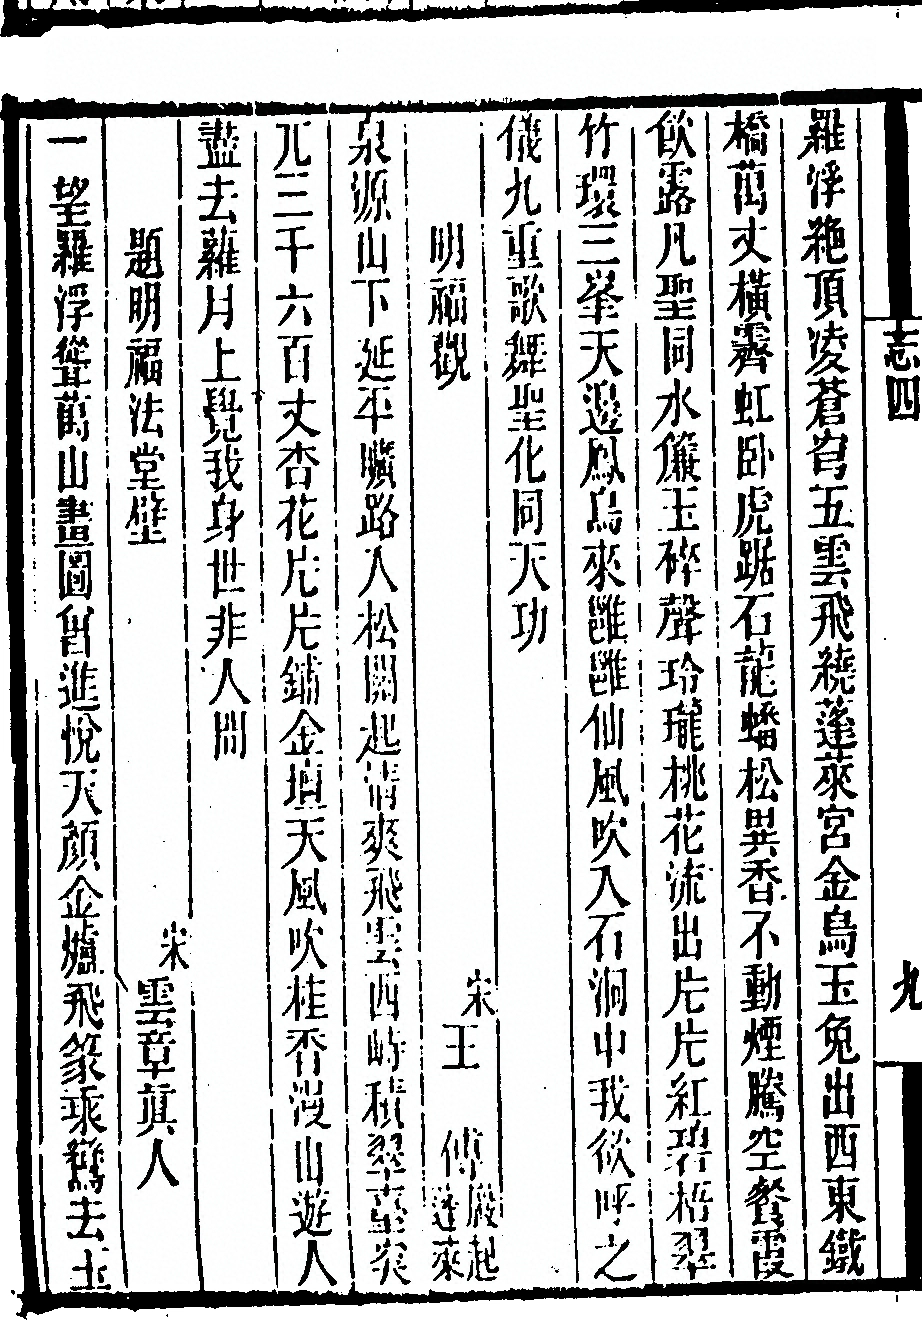 志四
九
羅浮絶頂凌蒼穹五雲飛繞蓬萊宮金烏玉兔出西東鐵
橋萬丈橫霽虹卧虎踞石龍蟠松異香不動煙騰空餐霞
飲露凡聖同水簾玉碎聲玲瓏桃花流出片片紅碧梧翠
竹環三峯天邊鳳鳥來雝雝仙風吹入石洞中我欲呼之
儀九重歌舞聖化同天功
明福觀
宋王　傅巖起蓬萊
泉源山下延平曠路入松關起清爽飛雲西峙積翠臺突
兀三千六百丈杏花片片鋪金壇天風吹桂香漫山遊人
盡去蘿月上覺我身世非人間
題明福法堂壁
宋雲章眞人
一望羅浮聳萬山畫圖曾進悅天顏金爐飛篆乘鸞去玉